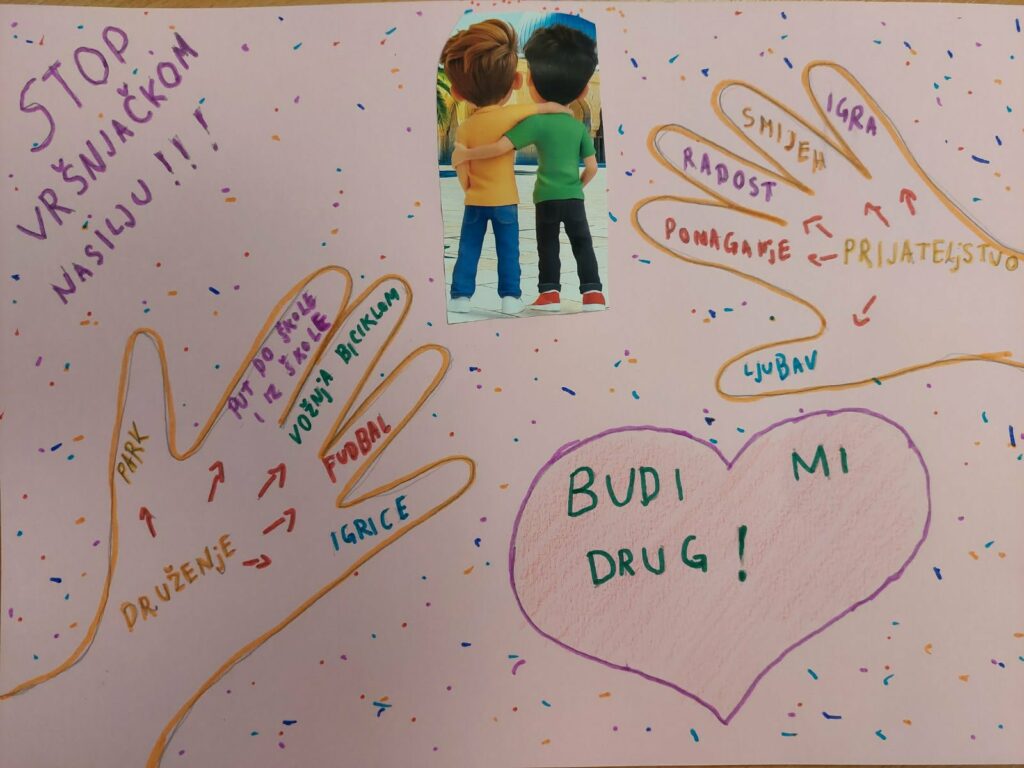 STOP
VRŠNJAČKOM
NASILJU !!!
IGRA
SMIJEH
RADOST
POMAGANjE
PRIJATELjSTVO
LJUBAV
PARK
PUT DO ŠKOLE
I IZ ŠKOLE
VOŽNjA BICIKLOM
FUDBAL
IGRICE
DRUŽENjE
BUDI MI
DRUG!